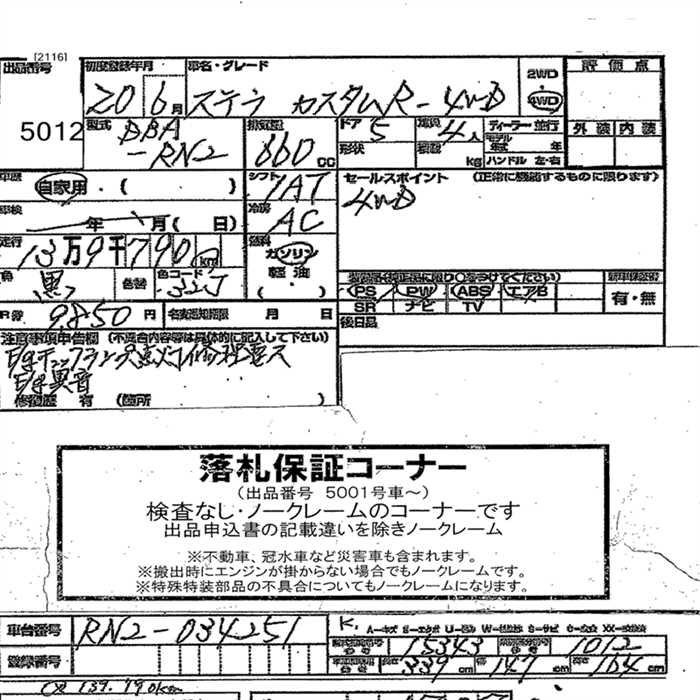 [2116]
出品番号 初度登録年月 車名・グレード 2WD 評価点
20 6月 ステラ カスタムR-4WD 4WD
5012 型式 DBA 排気量 ドア 5 定員 4人 ディーラー 並行 外装 内装
-RN2 660cc 形状 積載 kg モデル年式 年
ハンドル 左・右
車歴 自家用・( ) シフト IAT セールスポイント (正常に機能するものに限ります)
車検 年 月( 日) 冷房 AC 4WD
走行 13万9千790km 燃料 ガソリン
色 黒 色替 色コード 32J 軽油
( ・ )
PS PW ABS エアB 有・無
SR ナビ TV
R券 9,850円 名変通知期限 月 日 後日品
注意事項申告欄 (不具合内容等は具体的に記入して下さい)
異音
修復歴 有 (箇所 )
落札保証コーナー
(出品番号 5001号車~)
検査なし・ノークレームのコーナーです
出品申込書の記載違いを除きノークレーム
※不動車、冠水車など災害車も含まれます。
※搬出時にエンジンが掛からない場合でもノークレームです。
※特殊特装部品の不具合についてもノークレームになります。
車台番号 RN2-034251 K. A-キズ E-エクボ U-凹み W-
15343 1012
登録番号 長さ 339cm 幅 147cm 高さ 164cm
139,790km